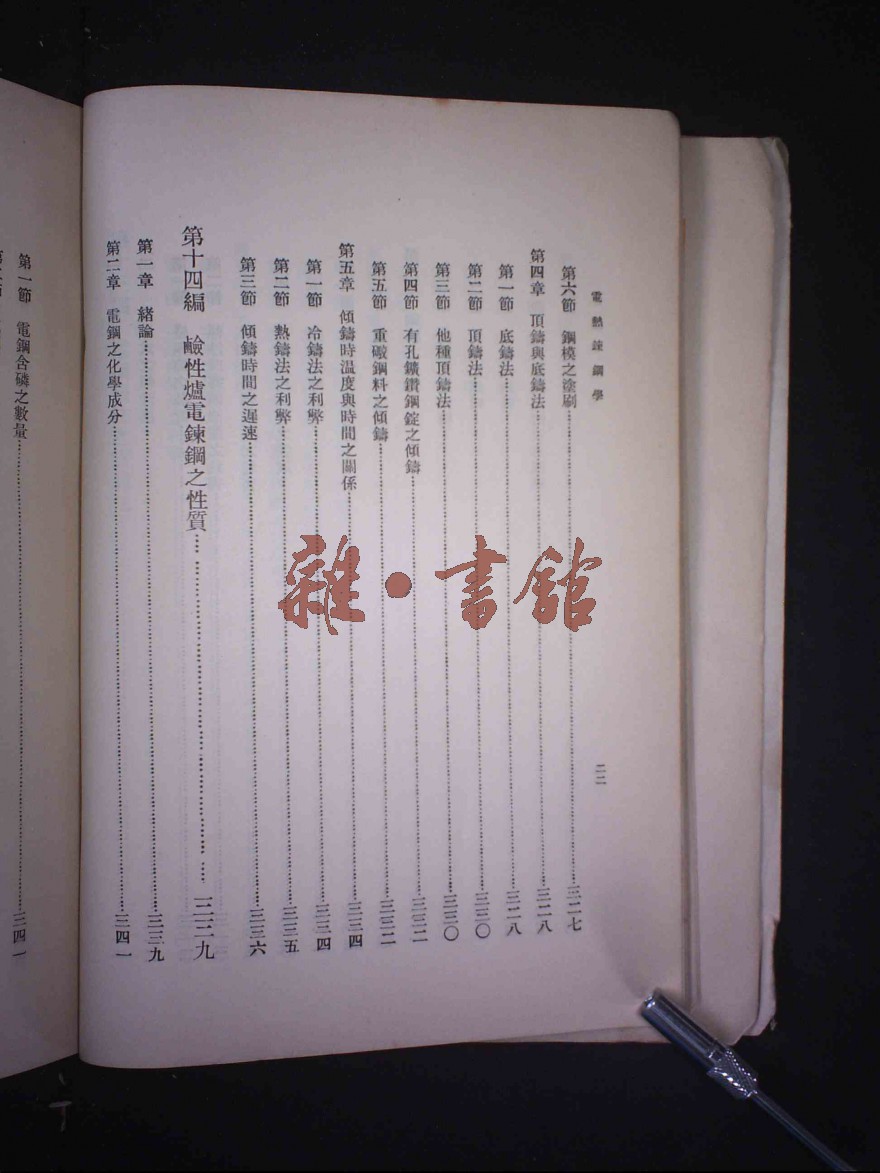 電熱鍊鋼學
二二
第六節　鋼模之塗刷……三二七
第四章　頂鑄與底鑄法……三二八
第一節　底鑄法……三二八
第二節　頂鑄法……三三〇
第三節　他種頂鑄法……三三〇
第四節　有孔鑛鑽鋼錠之傾鑄……三三二
第五節　重碾鋼料之傾鑄……三三二
第五章　傾鑄時温度與時間之關係……三三四
第一節　冷鑄法之利弊……三三四
第二節　熱鑄法之利弊……三三五
第三節　傾鑄時間之遲速……三三六
第十四編　鹼性爐電鍊鋼之性質……三三九
第一章　緒論……三三九
第二章　電鋼之化學成分……三四一
第一節　電鋼含磷之數量……三四一
雜·書館